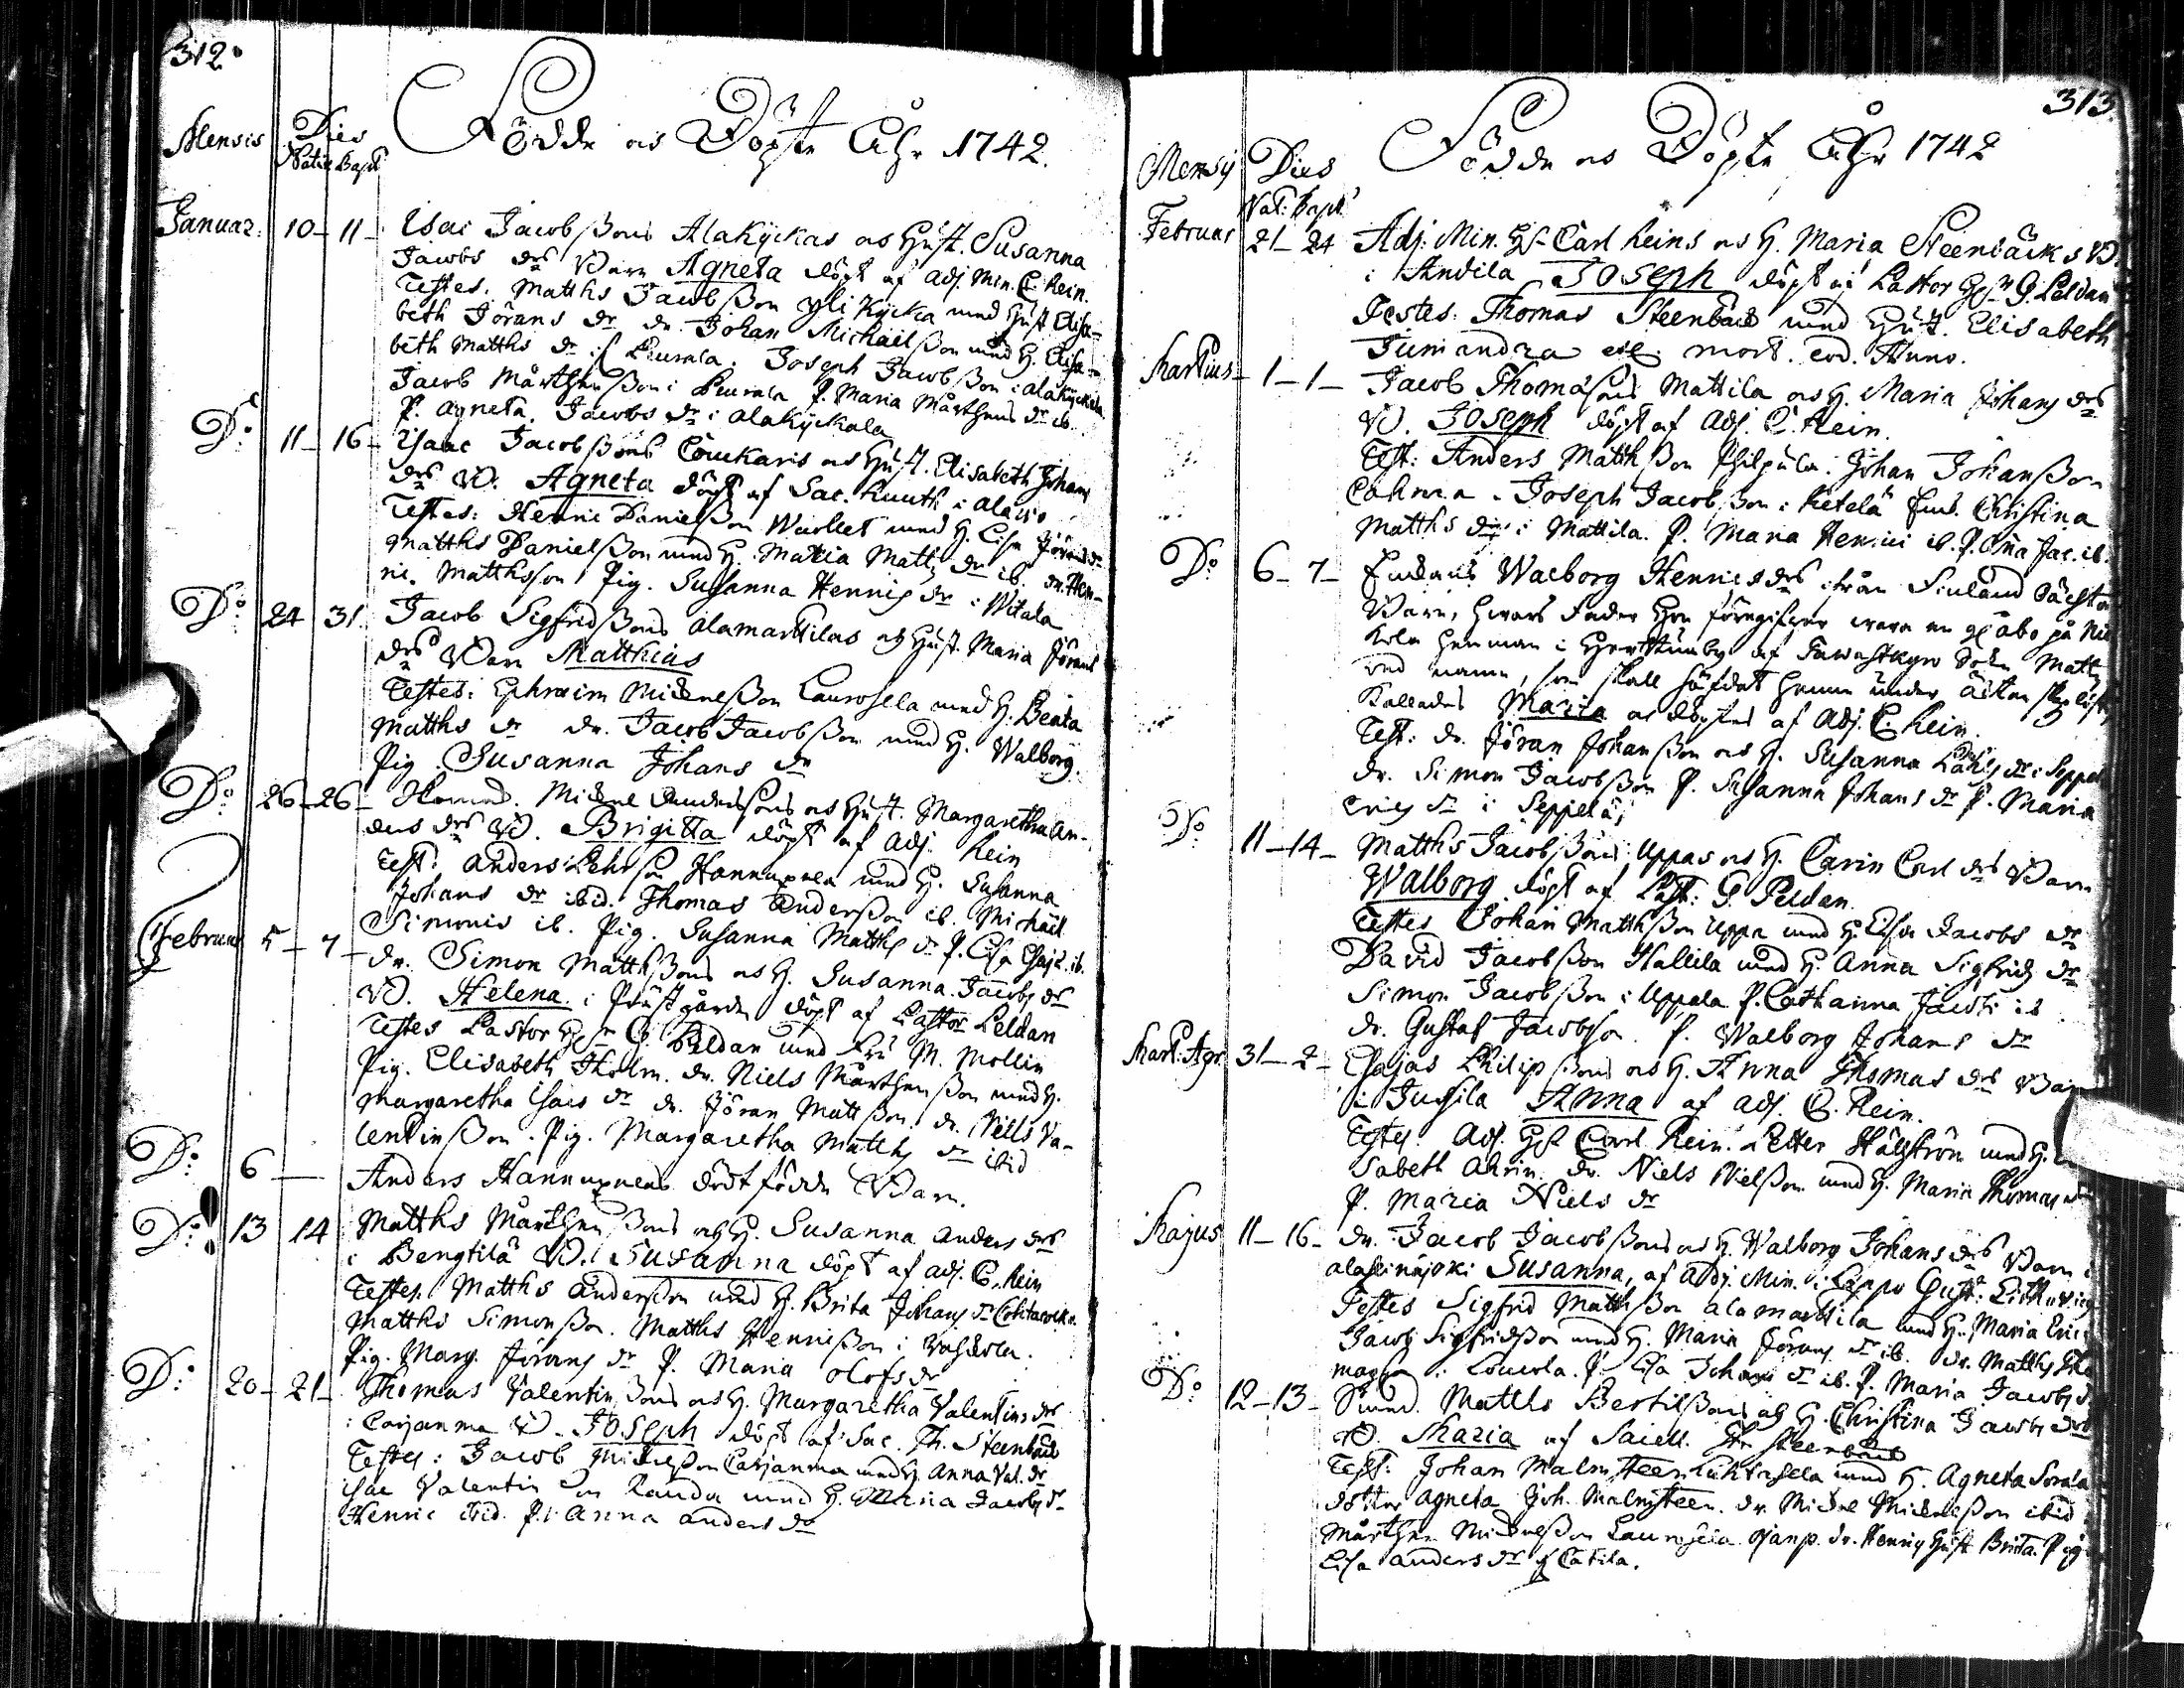 312.
Mensis Dies
Nati Bapt
Födde os Döpte Åhr 1742.
Januar: 10 - 11 - Esai Jacobßons Alakyckas os Hust. Susanna
Jacobs dr Barn Agneta döpt af Adj. Min. C. Rein.
Testes. Matths Jacobßon yli Kycka med Hust Elisa-
beth Jörans dr dr. Johan Michaelßon med H. Elisa-
beth Matths dr Peurala. Joseph Jacobßon i alakyckala
Jacob Mårthenßon i Peurala P. Maria Mårthens dr ib.
P. Agneta Jacobs dr i alakyckala
Do 11 - 16 - Isaac Jacobßons Couckaris os Hust. Elisabeth Johans
drs B. Agneta döpt af Sac. Kuuth i alawo
Testes: Henric Danielßon Warket med H. Lisa Jörans dr
Matths Danielßon med H. Maria Matths dr ib. dr. Hen-
ric Matthsson Pig. Susanna Henrics dr i Witala
Do 24 31 Jacob Sigfridßons alamarttilas os Hust. Maria Jörans
drs Barn Matthias
Testes: Ephraim Michelßon Laurosela med H. Beata
Matths dr dr. Jacob Jacobßon med H. Walborg
Pig. Susanna Johans dr
Do 26 - 26 - Michel Anderssons os Hust. Margaretha An-
ders drs B. Brigitta döpt af Adj. Rein
Test: Anders Hannuxela med H. Susanna
Johans dr ibid. Thomas Anderßon ib. Michaël
Simonis ib. Pig. Susanna Matths dr P. Lisa ib.
Februar 5 - 7 - dr. Simon Matthßons os H. Susanna Jacobs dr
B. Helena i Prästgården döpt af Pastor Peldan
Testes Pastor G. Peldan med Fru M. Mollin
Pig. Elisabeth Tholm. dr. Niels Mårthenßon med H.
Margaretha Isacs dr dr. Jöran Mattßon, dr. Niels Va-
lentinßon. Pig. Margaretha Matths dr ibid
Do 6 - Anders Hannuxelas dödfödde Barn.
Do 13 14 Matths Mårthenßons os H. Susanna Anders drs
i Bengtilä B. Susanna döpt af adj. C. Rein
Testes. Matths Anderßon med H. Brita Johans dr
Matths Simonßon. Matths Henricßon i
Pig. Marg. Jörans dr P. Maria Olofs dr
Do 20 - 21 - Thomas Valentinßons os H. Margaretha Valentins drs
i Carjanma B. Joseph döpt af Sac. Th. Steenbäck
Testes: Jacob Michelßon Carjanma med H. Anna Val. dr
Isac Valentin on Randa med H. Maria Jacobs dr
Henric ibid. P. Anna Anders dr
313.
Mensis Dies
Nat: Bapt
Födde os Döpte Åhr 1742
Februar 21 - 24 Adj. Min. Carl Reins os H. Maria Steenbäcks B.
i Andila Joseph döpt af Pastor G. Peldan
Testes: Thomas Steenbäck med Hust. Elisabeth
Tumandra est mort. eod. Anno.
Martius - 1 - 1 - Jacob Thomaßons Mattila os H. Maria Johans drs
B. Joseph döpt af Adj. C. Rein.
Test: Anders Matthßon Philpula. Johan Johanßon
Joseph Jacobßon i Ketelä Christina
Matths dr i Mattila. P. Maria Henrici ib. P. Jac. ib.
Do 6 - 7 - Walborg Henrics drs ifrån Finland
Barn, hwars Fader
i af Tawastkyro Matths
wid namn, som skall
Kallades Maria os döptes af Adj. C. Rein.
Test: dr. Jöran Johanßon os H. Susanna dr i Seppel
dr. Simon Jacobßon P. Susanna Johans dr P. Maria
Erics dr i Seppelä
Do 11 - 14 - Matths Jacobßons Uppas os H. Carin Carl drs Barn
Walborg döpt af Past: G. Peldan.
Testes Johan Matthßon Uppa med H. Lisa Jacobs dr
David Jacobßon Hallila med H. Anna Sigfrids dr
Simon Jacobßon i Uppala P. Catharina Jacobi ib
dr. Gustaf Jacobsson. P. Walborg Johans dr
Mart: Apr. 31 - 2 - Esajas Philipßons os H. Anna Thomas drs Barn
i Jusila Anna af adj. C. Rein.
Testes. Adj. Carl Rein. Petter Hälström med H.
sabeth Ahrin. dr. Niels Nielßon med H. Maria Thomas dr
P. Maria Niels dr
Majus 11 - 16 - dr. Jacob Jacobßons os H. Walborg Johans drs Barn i
alaseinäjoki Susanna, af Adj. Min. i Lappo Gust.
Testes Sigfrid Matthßon alamarttila med H. Maria Erics
Jacob Sigfridßon med H. Maria Jörans dr ib. dr. Matths Tho
maßon i Loucola. P. Lisa Johans dr ib. P. Maria Jacobs d.
Do 12 - 13 - Matths Bertilßons os H. Christina Jacobs drs
B. Maria af Sacell. Th Steenbäck
Test: Johan Malmsteen med H. Agneta
dotter Agneta Joh. Malmsteen. dr Michel Michelßon ibid
Mårthen Michelßon Laurosela dr. Henrics Hust Brita. Pig
Lisa Anders dr